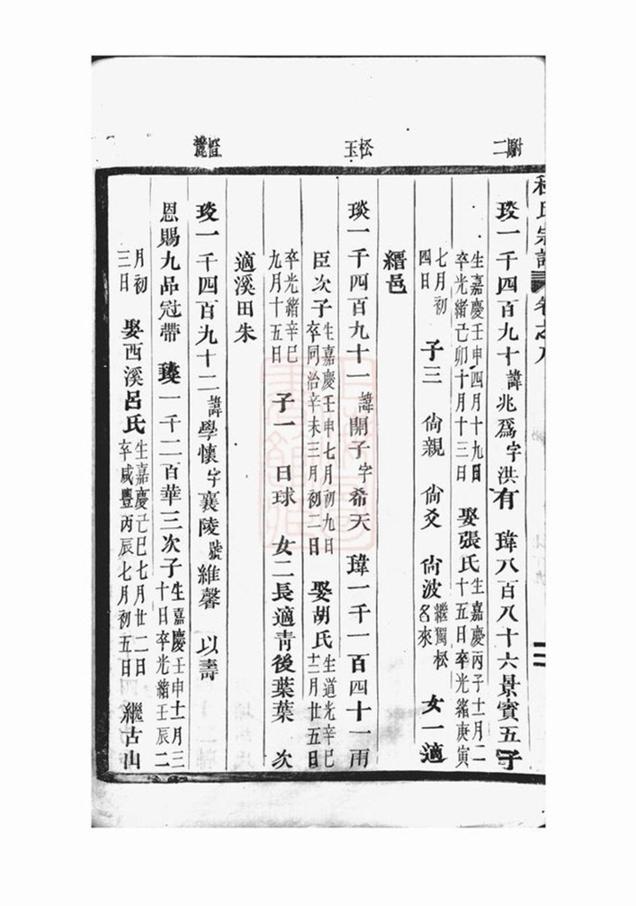 附二
松玉
琰一千四百九十諱兆爲字洪有 瑋八百八十六景賓五子
生嘉慶壬申四月十九日
卒光緒己卯十月十三日 娶張氏生嘉慶丙子十一月二
十五日卒光緒庚寅
七月初
四日 子三 尙親 尙爻 尙波繼獨松
名來 女一適
縉邑
琰一千四百九十一諱開子字希天 瑋一千一百四十一雨
臣次子生嘉慶壬申七月初九日
卒同治辛未三月初二日 娶胡氏生道光辛巳
十二月廿五日
卒光緒辛巳
九月十五日 子一 日球 女二長適靑後葉葉 次
適溪田朱
琰一千四百九十二諱學懷字襄陵號維馨 以壽
恩賜九品冠帶 瑧一千二百華三次子生嘉慶壬申十一月三
十日卒光緒壬辰二
月初
三日 娶西溪呂氏生嘉慶己巳七月廿二日
卒咸豐丙辰七月初五日 繼古山